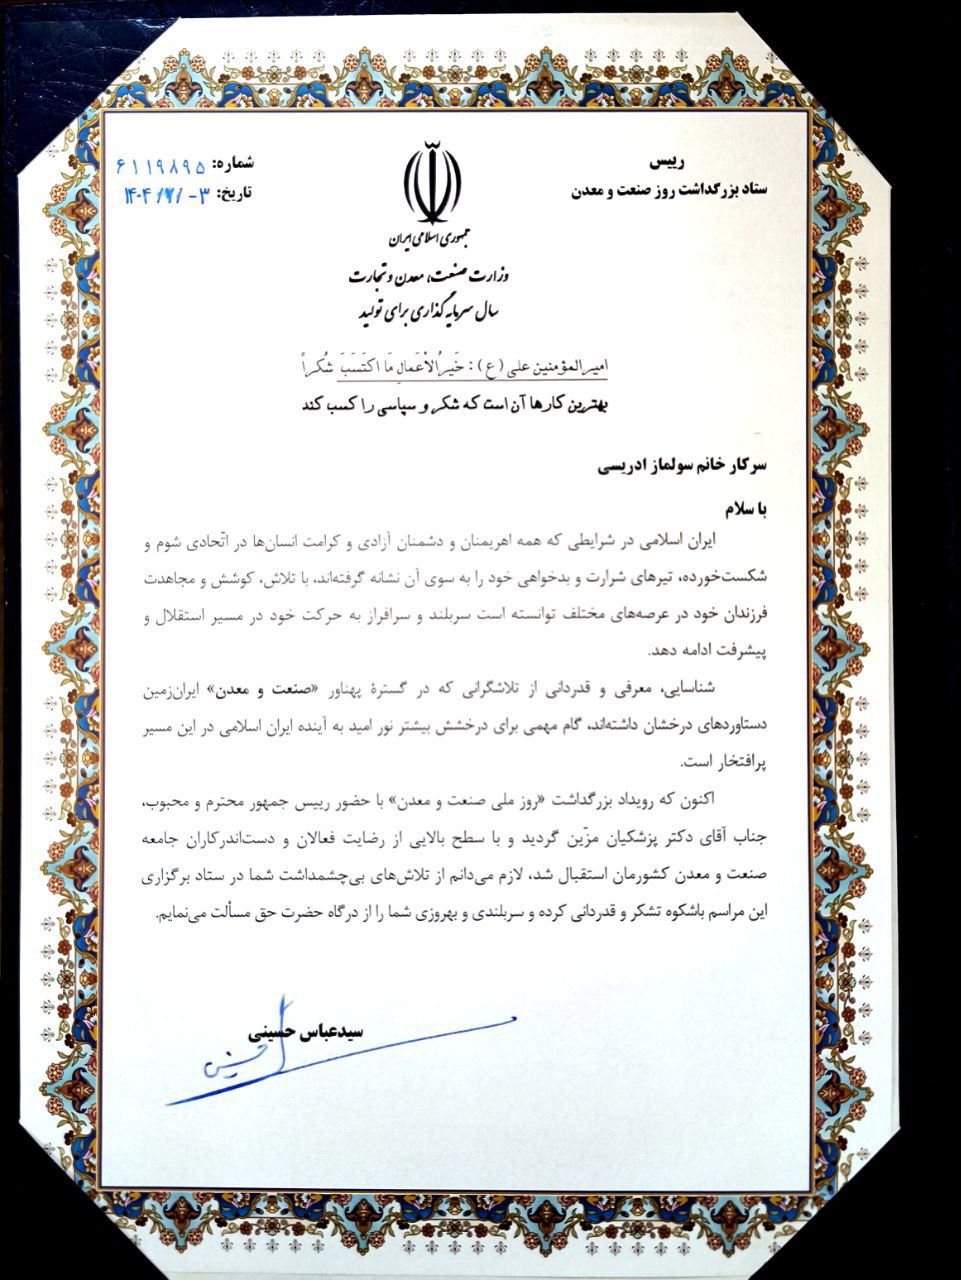 رییس
ستاد بزرگداشت روز صنعت و معدن
شماره: ۶۱۱۹۸۹۵
تاریخ: ۱۴۰۴/۷/-۳
جمهوری اسلامی ایران
وزارت صنعت، معدن و تجارت
سال سرمایه گذاری برای تولید
امیرالمؤمنین علی (ع): خَیرُ الْاَعْمالِ مَا اکتَسَبَ شُکراً
بهترین کارها آن است که شکر و سپاسی را کسب کند
سرکار خانم سولماز ادریسی
با سلام
ایران اسلامی در شرایطی که همه اهریمنان و دشمنان آزادی و کرامت انسان‌ها در اتّحادی شوم و
شکست‌خورده، تیرهای شرارت و بدخواهی خود را به سوی آن نشانه گرفته‌اند، با تلاش، کوشش و مجاهدت
فرزندان خود در عرصه‌های مختلف توانسته است سربلند و سرافراز به حرکت خود در مسیر استقلال و
پیشرفت ادامه دهد.
شناسایی، معرفی و قدردانی از تلاشگرانی که در گسترهٔ پهناور «صنعت و معدن» ایران‌زمین
دستاوردهای درخشان داشته‌اند، گام مهمی برای درخشش بیشتر نور امید به آینده ایران اسلامی در این مسیر
پرافتخار است.
اکنون که رویداد بزرگداشت «روز ملی صنعت و معدن» با حضور رییس جمهور محترم و محبوب،
جناب آقای دکتر پزشکیان مزّین گردید و با سطح بالایی از رضایت فعالان و دست‌اندرکاران جامعه
صنعت و معدن کشورمان استقبال شد، لازم می‌دانم از تلاش‌های بی‌چشمداشت شما در ستاد برگزاری
این مراسم باشکوه تشکر و قدردانی کرده و سربلندی و بهروزی شما را از درگاه حضرت حق مسألت می‌نمایم.
سیدعباس حسینی